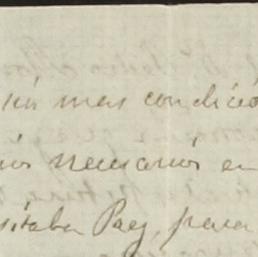 sin mas condició
ios necesarios en
sitaba Paz, para